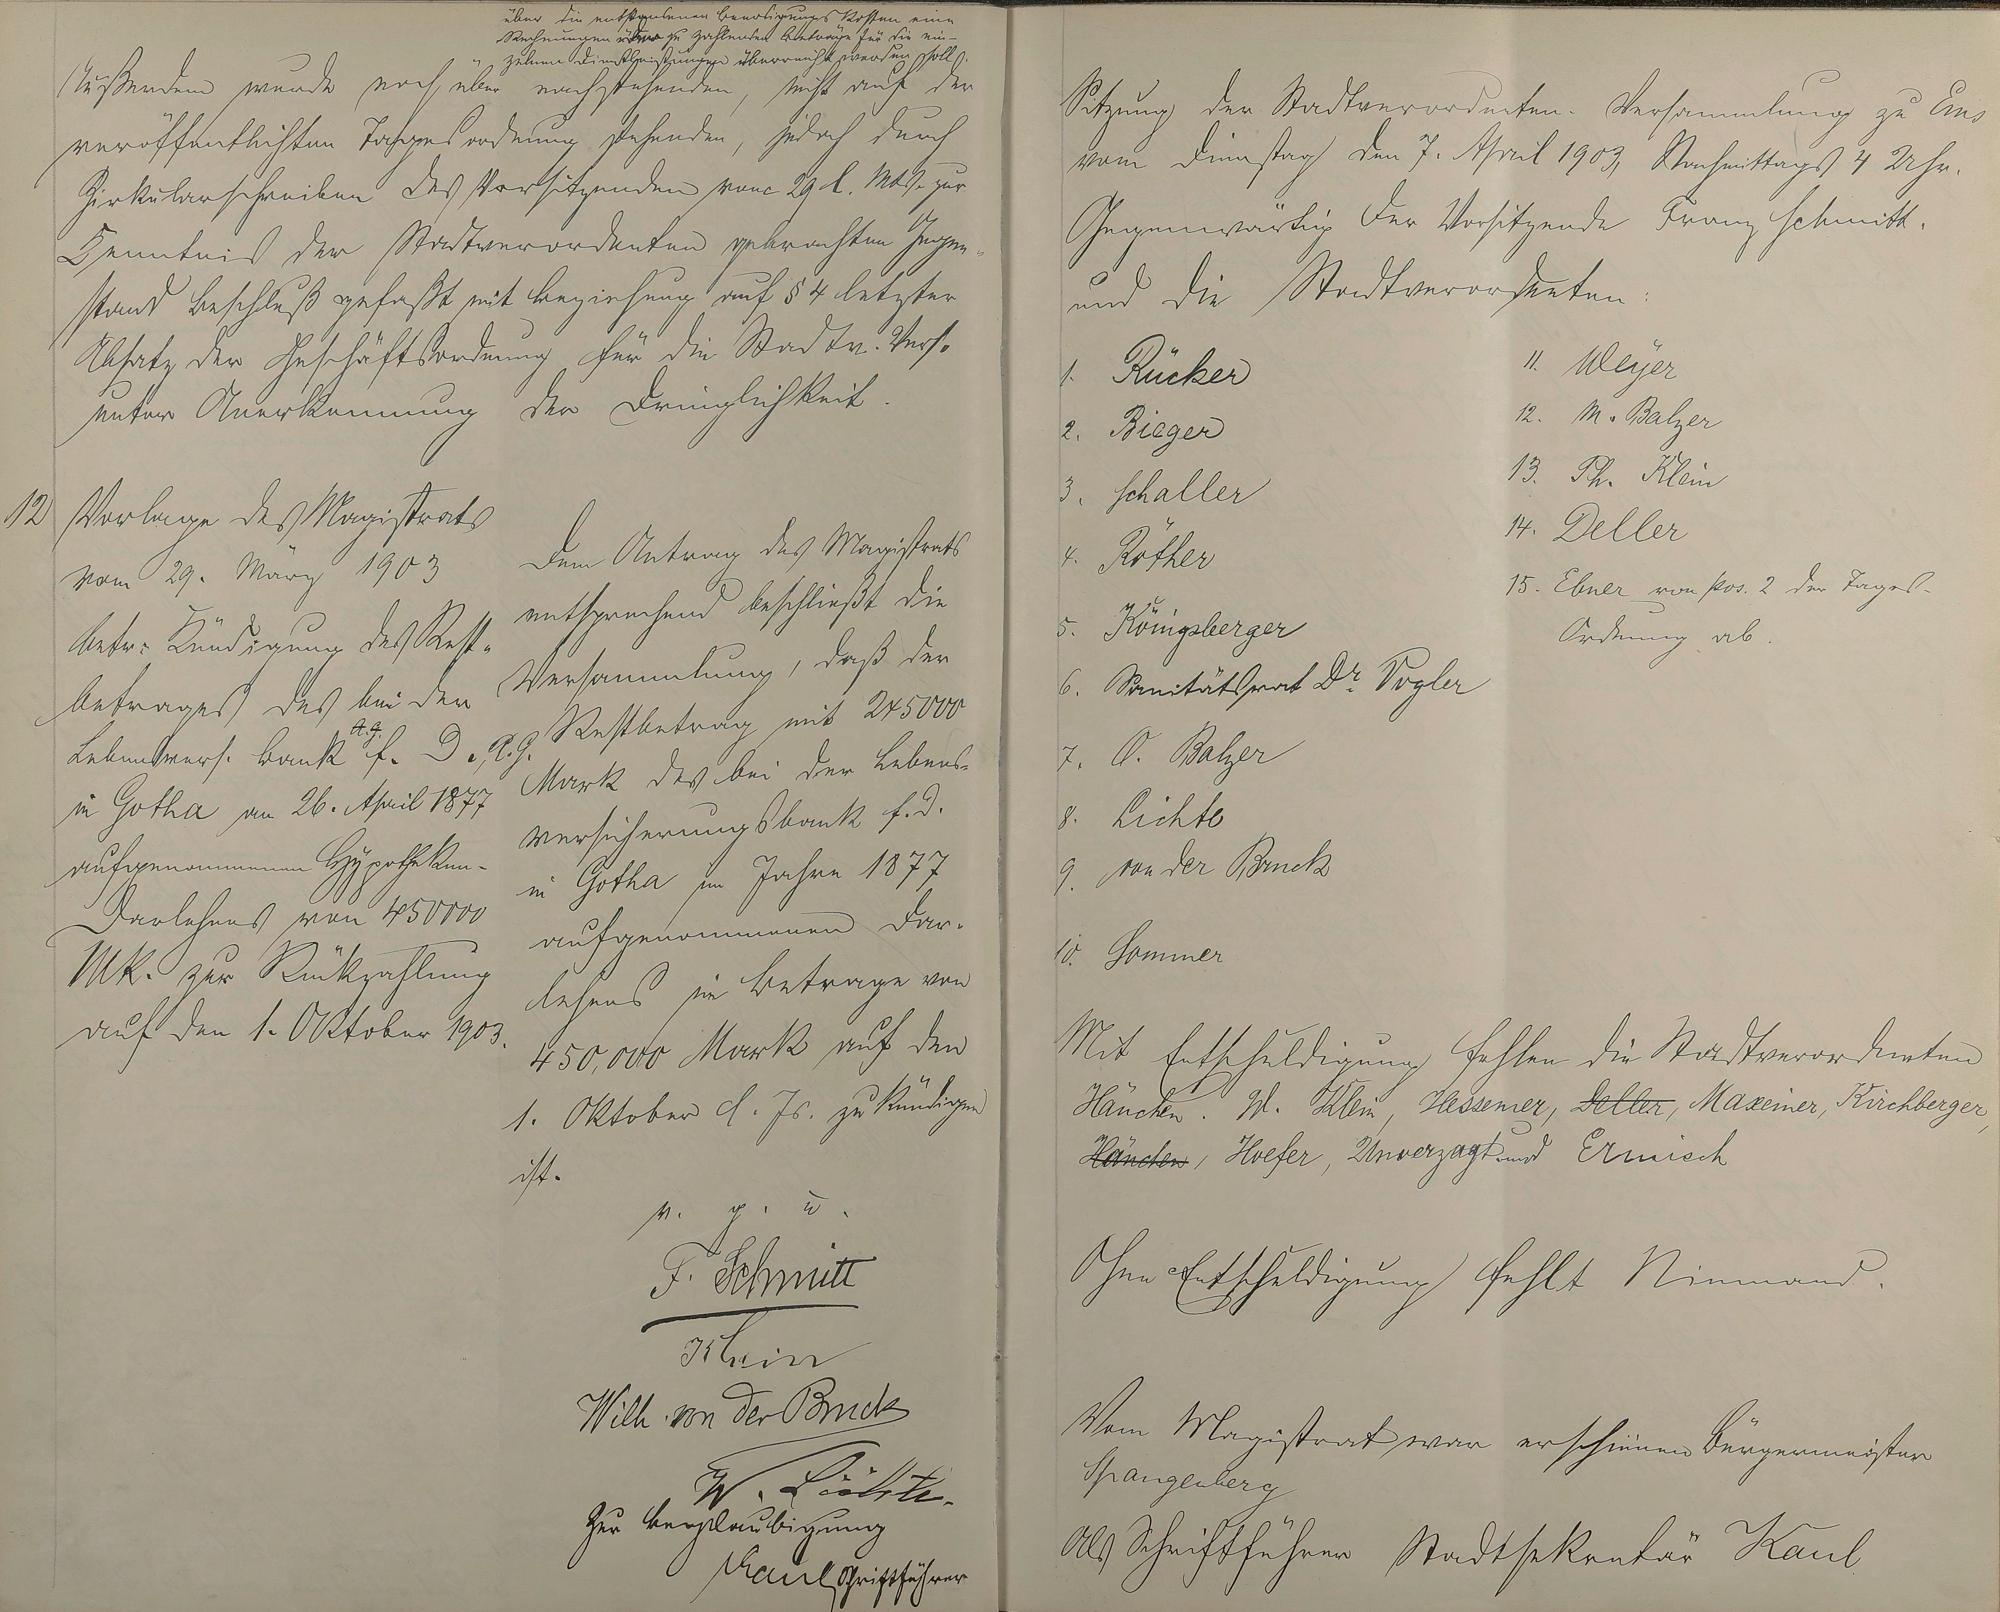 über die entstandenen Beerdigungs Kosten eine
Rechnungen zu zahlenden Beträge für die ein-
zelnen Dienstleistungen überreicht werden soll.
Außerdem wurde noch über nachstehenden, nicht auf der
veröffentlichten Tagesordnung stehenden, jedoch durch
Zirkularschreiben des Vorsitzenden vom 29 l. Mts. zur
Kenntnis der Stadtverordneten gebrachten Gegen-
stand Beschluß gefaßt mit Beziehung auf § 4 letzter
Absatz der Geschäftsordnung für die Stadtv. Vers.
unter Anerkennung der Dringlichkeit.
12 Vorlage des Magistrats
vom 29. März 1903
betr: Kündigung des Rest-
betrages des bei der
Lebensvers. Bank a.G. f. D., a.G.
in Gotha am 26. April 1877
aufgenommenen Hypotheken-
Darlehens von 450000
Mk. zur Rückzahlung
auf den 1. Oktober 1903.
Dem Antrag des Magistrats
entsprechend beschließt die
Versammlung, daß der
Restbetrag mit 245000
Mark des bei der Lebens-
versicherungsbank f. D.
in Gotha im Jahre 1877
aufgenommenen Dar-
lehens im Betrage von
450,000 Mark auf den
1. Oktober d. Js. zu kündigen
ist.
v. g. u.
F. Schmitt
Klein
Wilh. von der Bruck
W.
Zur Beglaubigung
Kaul Schriftführer
Sitzung der Stadtverordneten-Versammlung zu Ems
vom Dienstag den 7. April 1903, Nachmittags 4 Uhr.
Gegenwärtig der Vorsitzende Franz Schmitt.
und die Stadtverordneten:
1. Rücker
2. Bieger
3. Schaller
4. Röther
5. Königsberger
6. Sanitätsrat Dr. Vogler
7. O. Balzer
8. Lichte
9. von der Bruck
10. Sommer
11. Weyer
12. M. Balzer
13. Ph. Klein
14. Deller
15. Ebner von Pos. 2 der Tages-
Ordnung ab.
Mit Entschuldigung fehlen die Stadtverordneten
Hänchen. W. Klein, Hessemer, Deller, Maxeiner, Kirchberger,
Hänchen, Hoefer, Unverzagt und Ermisch
Ohne Entschuldigung fehlt Niemand.
Vom Magistrat war erschienen Bürgermeister
Spangenberg
Als Schriftführer Stadtsekretär Kaul